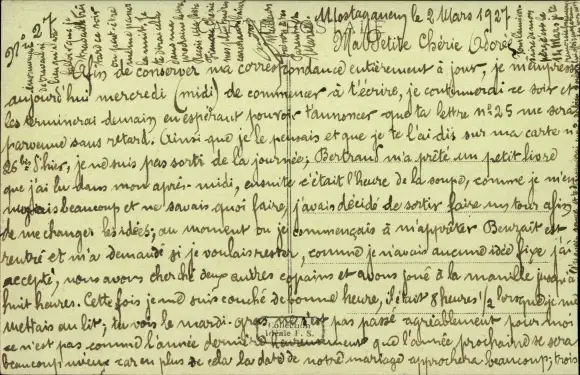 Nº 27
Mostaganem le 2 Mars 1927
Ma Petite Chérie Adorée
Afin de conserver ma correspondance entièrement à jour, je m'empresse
aujourd'hui mercredi (midi) de commencer à t'écrire, je continuerai ce soir et
les terminerai demain en espérant pouvoir t'annoncer que ta lettre nº 25 me sera
parvenue sans retard. Ainsi que je le pensais et que je te l'ai dis sur ma carte nº
26 d'hier, je ne suis pas sorti de la journée; Bertrand m'a prêté un petit livre
que j'ai lu dans mon après-midi, ensuite c'était l'heure de la soupe, comme je m'en
nuyais beaucoup et ne savais quoi faire, j'avais décidé de sortir faire un tour afin
de me changer les idées; au moment où je commençais à m'apprêter Benzait est
rentré et m'a demandé si je voulais rester, comme je n'avais aucune idée fixe j'ai
accepté, nous avons cherché deux autres copains et avons joué à la manille jusqu'à
huit heures. Cette fois je me suis couché de bonne heure, il était 8 heures 1/2 lorsque je me
mettais au lit; tu vois le mardi-gras ne s'est pas passé agréablement pour moi
ce n'est pas comme l'année dernière heureusement que l'année prochaine ce sera
beaucoup mieux car en plus de cela la date de notre mariage approchera beaucoup; trois
Collection
Idéale P. S.